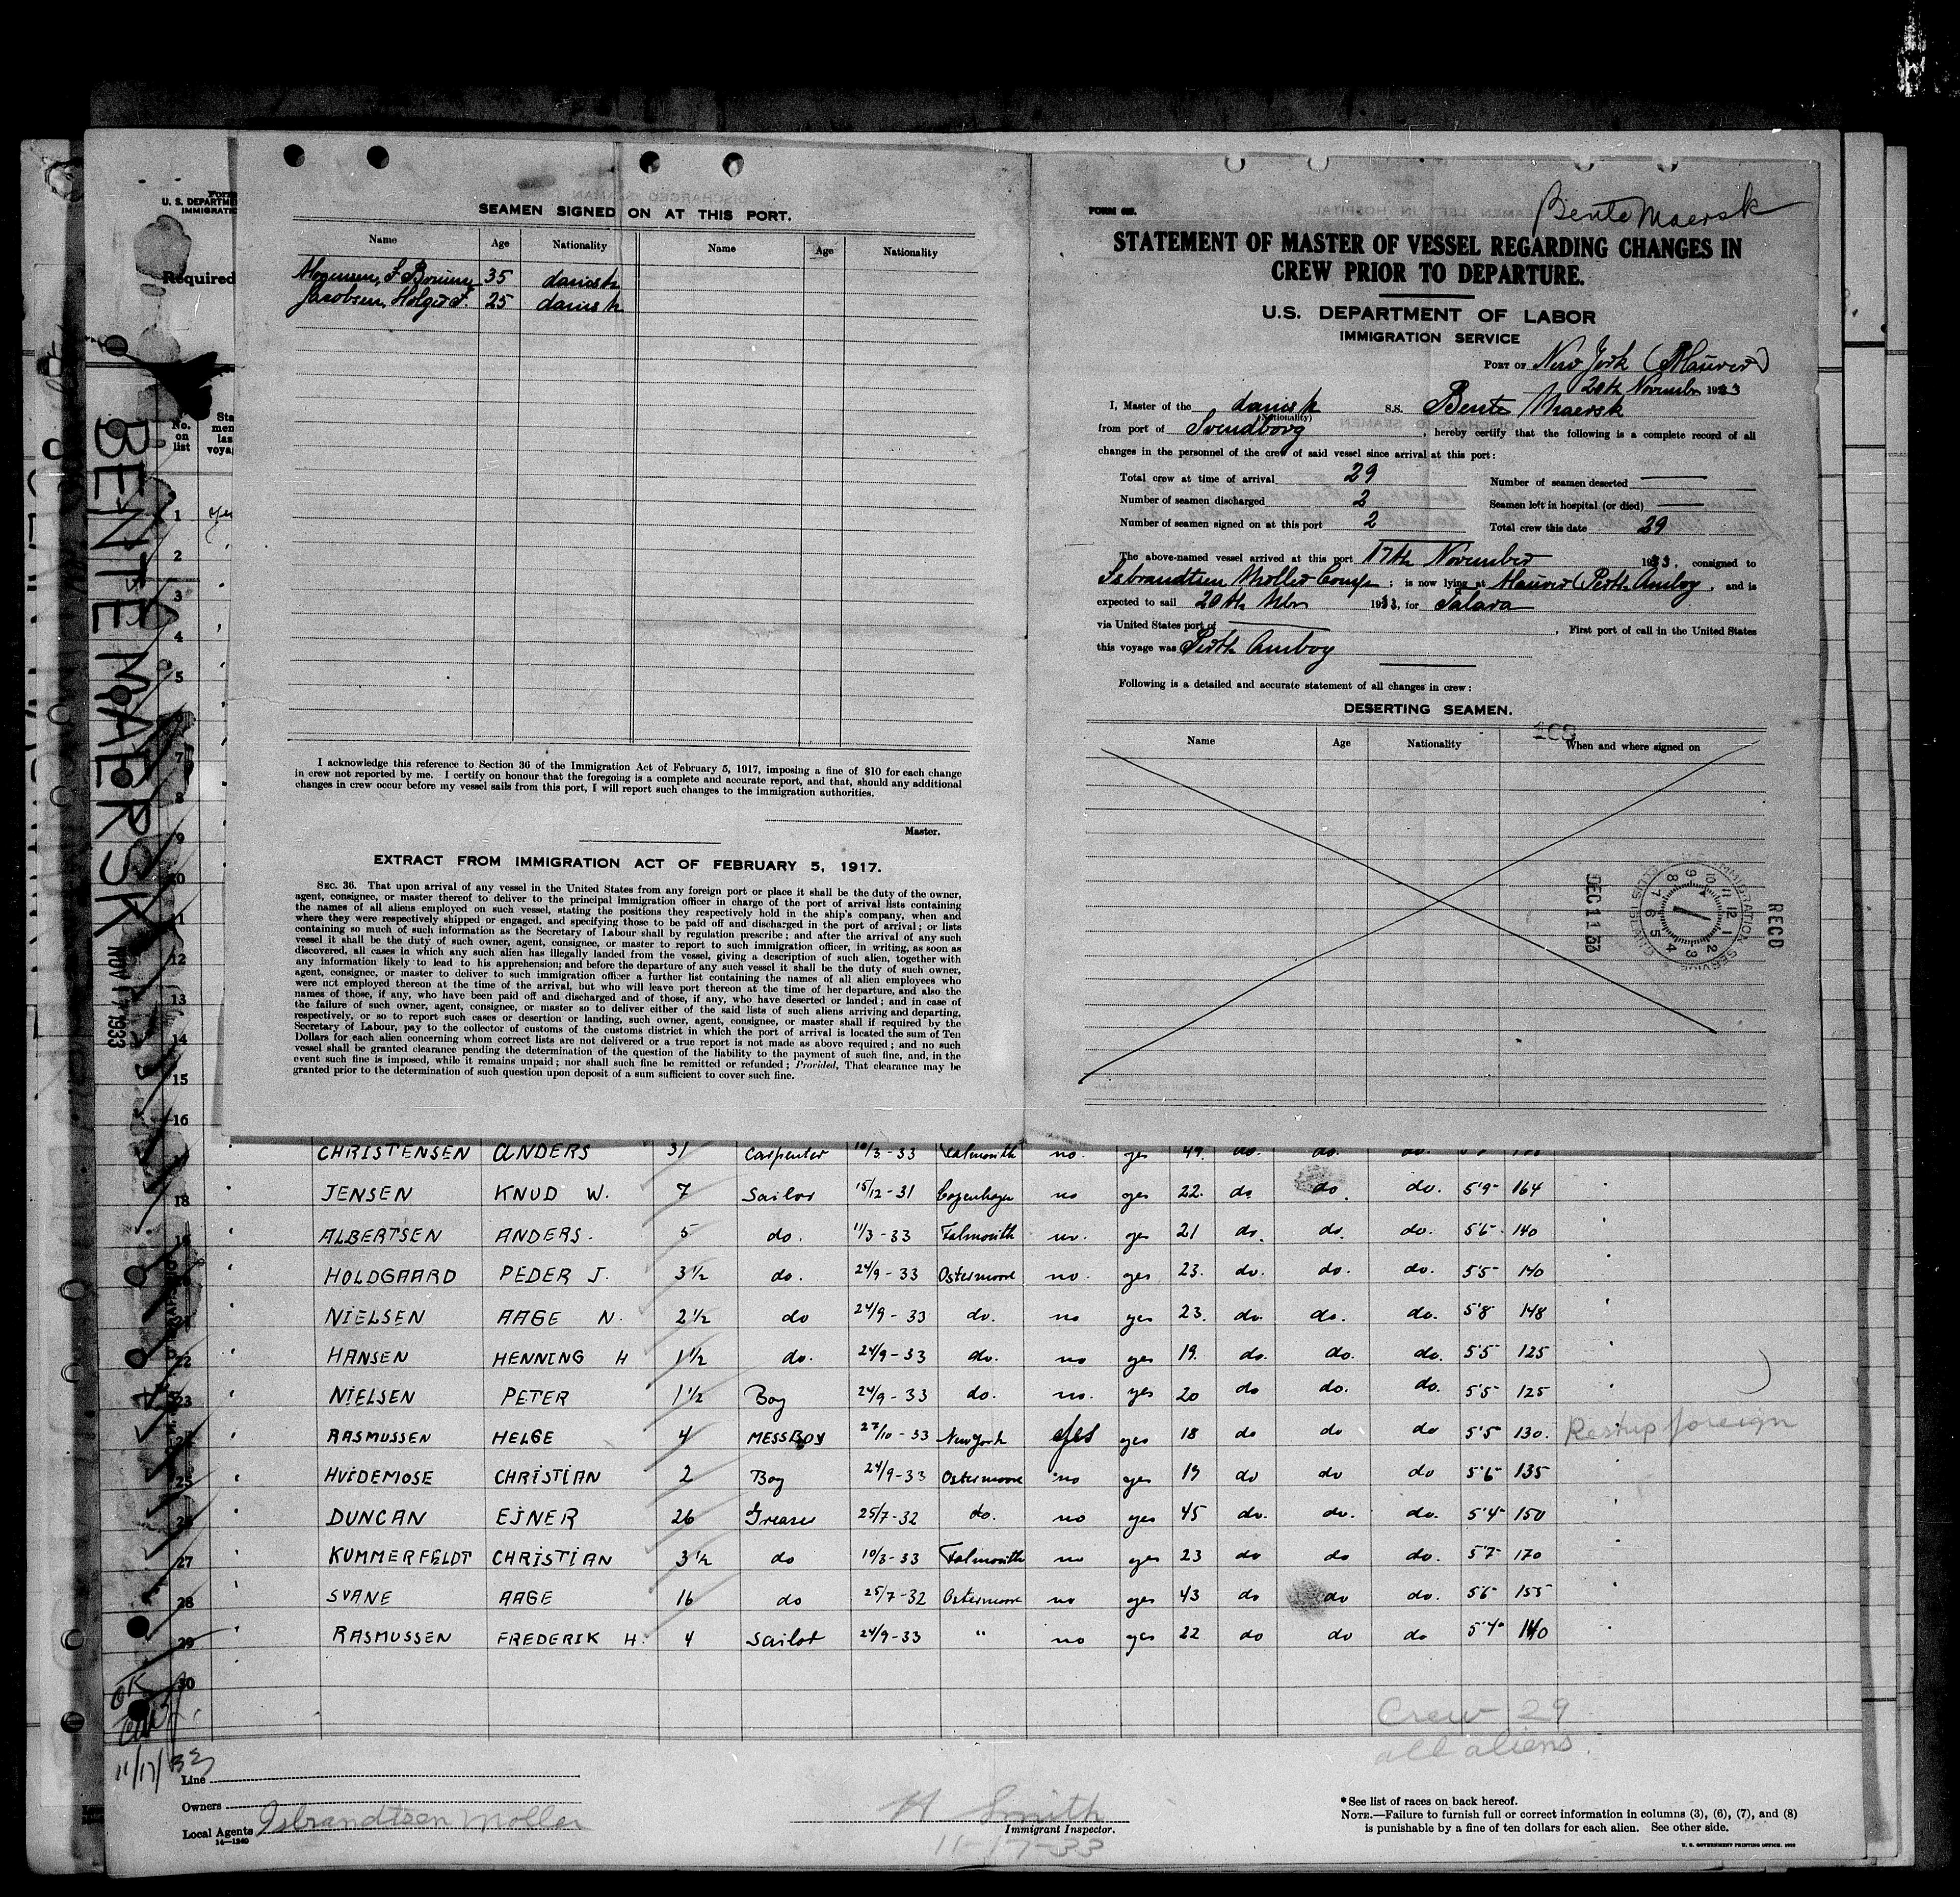 SEAMEN SIGNED ON AT THIS PORT.
Name Age Nationality Name Age Nationality
Mogensen, F 35 danish
Jacobsen, Holger F. 25 danish
I acknowledge this reference to Section 36 of the Immigration Act of February 5, 1917, imposing a fine of $10 for each change
in crew not reported by me. I certify on honour that the foregoing is a complete and accurate report, and that, should any additional
changes in crew occur before my vessel sails from this port, I will report such changes to the immigration authorities.
Master.
EXTRACT FROM IMMIGRATION ACT OF FEBRUARY 5, 1917.
SEC. 36. That upon arrival of any vessel in the United States from any foreign port or place it shall be the duty of the owner,
agent, consignee, or master thereof to deliver to the principal immigration officer in charge of the port of arrival lists containing
the names of all aliens employed on such vessel, stating the positions they respectively hold in the ship's company, when and
where they were respectively shipped or engaged, and specifying those to be paid off and discharged in the port of arrival; or lists
containing so much of such information as the Secretary of Labour shall by regulation prescribe; and after the arrival of any such
vessel it shall be the duty of such owner, agent, consignee, or master to report to such immigration officer, in writing, as soon as
discovered, all cases in which any such alien has illegally landed from the vessel, giving a description of such alien, together with
any information likely to lead to his apprehension; and before the departure of any such vessel it shall be the duty of such owner,
agent, consignee, or master to deliver to such immigration officer a further list containing the names of all alien employees who
were not employed thereon at the time of the arrival, but who will leave port thereon at the time of her departure, and also the
names of those, if any, who have been paid off and discharged and of those, if any, who have deserted or landed; and in case of
the failure of such owner, agent, consignee, or master so to deliver either of the said lists of such aliens arriving and departing,
respectively, or so to report such cases or desertion or landing, such owner, agent, consignee, or master shall if required by the
Secretary of Labour, pay to the collector of customs of the customs district in which the port of arrival is located the sum of Ten
Dollars for each alien concerning whom correct lists are not delivered or a true report is not made as above required; and no such
vessel shall be granted clearance pending the determination of the question of the liability to the payment of such fine, and, in the
event such fine is imposed, while it remains unpaid; nor shall such fine be remitted or refunded; Provided, That clearance may be
granted prior to the determination of such question upon deposit of a sum sufficient to cover such fine.
Bente Maersk
FORM 689.
STATEMENT OF MASTER OF VESSEL REGARDING CHANGES IN
CREW PRIOR TO DEPARTURE.
U.S. DEPARTMENT OF LABOR
IMMIGRATION SERVICE
PORT OF New York (Maurer)
20th November 1933
I, Master of the danish S.S. Bente Maersk
(Nationality)
from port of Svendborg, hereby certify that the following is a complete record of all
changes in the personnel of the crew of said vessel since arrival at this port:
Total crew at time of arrival 29 Number of seamen deserted —
Number of seamen discharged 2 Seamen left in hospital (or died) —
Number of seamen signed on at this port 2 Total crew this date 29
The above-named vessel arrived at this port 17th November 1933, consigned to
Isbrandtsen Moller Comp; is now lying at Maurer (Perth Amboy, and is
expected to sail 20th Nbr 1933, for Talara
via United States port of —, First port of call in the United States
this voyage was Perth Amboy
Following is a detailed and accurate statement of all changes in crew:
DESERTING SEAMEN.
Name Age Nationality When and where signed on
RECD
DEC 11 33
BENTE MAERSK
NOV 17 1933
U. S. DEPARTME
IMMIGRATIO
Required
No. on list
1
2
3
4
5
6
7
8
9
10
11
12
13
14
15
16
CHRISTENSEN ANDERS 31 Carpenter 10/3-33 Falmouth no yes 49. do. do. do.
18 JENSEN KNUD W. 7 Sailor 15/12-31 Copenhagen no yes 22. do do. do. 5'9" 164
19 ALBERTSEN ANDERS. 5 do. 11/3-33 Falmouth no. yes 21 do. do. do. 5'6" 140
HOLDGAARD PEDER J. 3½ do. 24/9-33 Ostermoor no. yes 23. do. do. do. 5'5" 140
21 NIELSEN AAGE N. 2½ do 24/9-33 do. no yes 23. do. do. do. 5'8" 148
22 HANSEN HENNING H 1½ do. 24/9-33 do. no yes 19. do. do. do. 5'5" 125
23 NIELSEN PETER 1½ Boy 24/9-33 do. no. yes 20 do do. do. 5'5" 125
24 RASMUSSEN HELGE 4 MESSBOY 27/10-33 New York yes yes 18 do do do 5'5" 130. Reship foreign
25 HVIDEMOSE CHRISTIAN 2 Boy 24/9-33 Ostermoor no yes 19 do do do 5'6" 135
26 DUNCAN EJNER 26 Greaser 25/7-32 do. no yes 45 do. do. do. 5'4" 150
27 KUMMERFELDT CHRISTIAN 3½ do 10/3-33 Falmouth no yes 23 do do do. 5'7" 170
28 SVANE AAGE 16 do 25/7-32 Ostermoor no yes 43 do do do. 5'6" 155
29 RASMUSSEN FREDERIK H. 4 Sailor 24/9-33 " no yes 22 do do do 5'4" 140
30
OK
11/17/33
Crew 29
all aliens.
Line
Owners
Local Agents Isbrandtsen Moller
14—1240
H Smith
Immigrant Inspector.
11-17-33
*See list of races on back hereof.
NOTE.—Failure to furnish full or correct information in columns (3), (6), (7), and (8)
is punishable by a fine of ten dollars for each alien. See other side.
U. S. GOVERNMENT PRINTING OFFICE